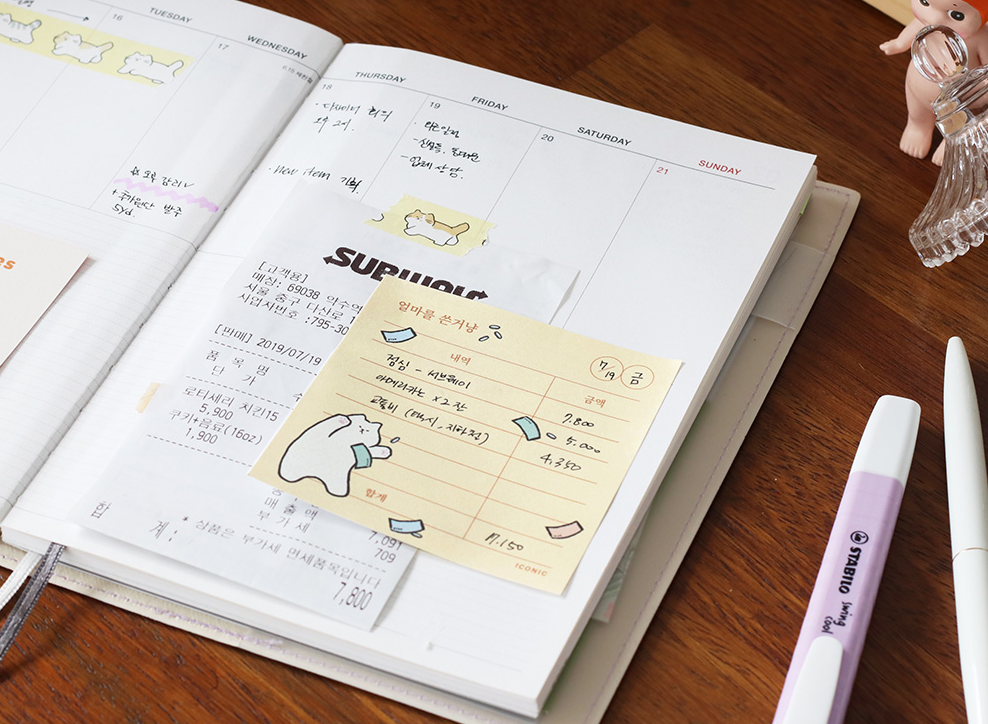 16
TUESDAY
17
WEDNESDAY
+ 추가원단 발주
Syd.
18
THURSDAY
오후 2시.
· New item 기획
19
FRIDAY
20
SATURDAY
21
SUNDAY
SUBWAY
[고객용]
매장: 69038 약수역
서울 중구 다산로 1
사업자번호 :795-30
[판매] 2019/07/19
품 목 명
단 가
수
로티세리 치킨15
5,900
쿠키+음료(16oz)
1,900
매 출 액
부 가 세
7,091
709
* 상품은 부가세 면세품목입니다
합 계:
7,800
얼마를 쓴거냥
7/19
금
내역
금액
점심 - 서브웨이
7.800
아메리카노 x 2 잔
5.000
교통비 (택시, 지하철)
4.350
합계
17.150
ICONIC
STABILO
swing
cool